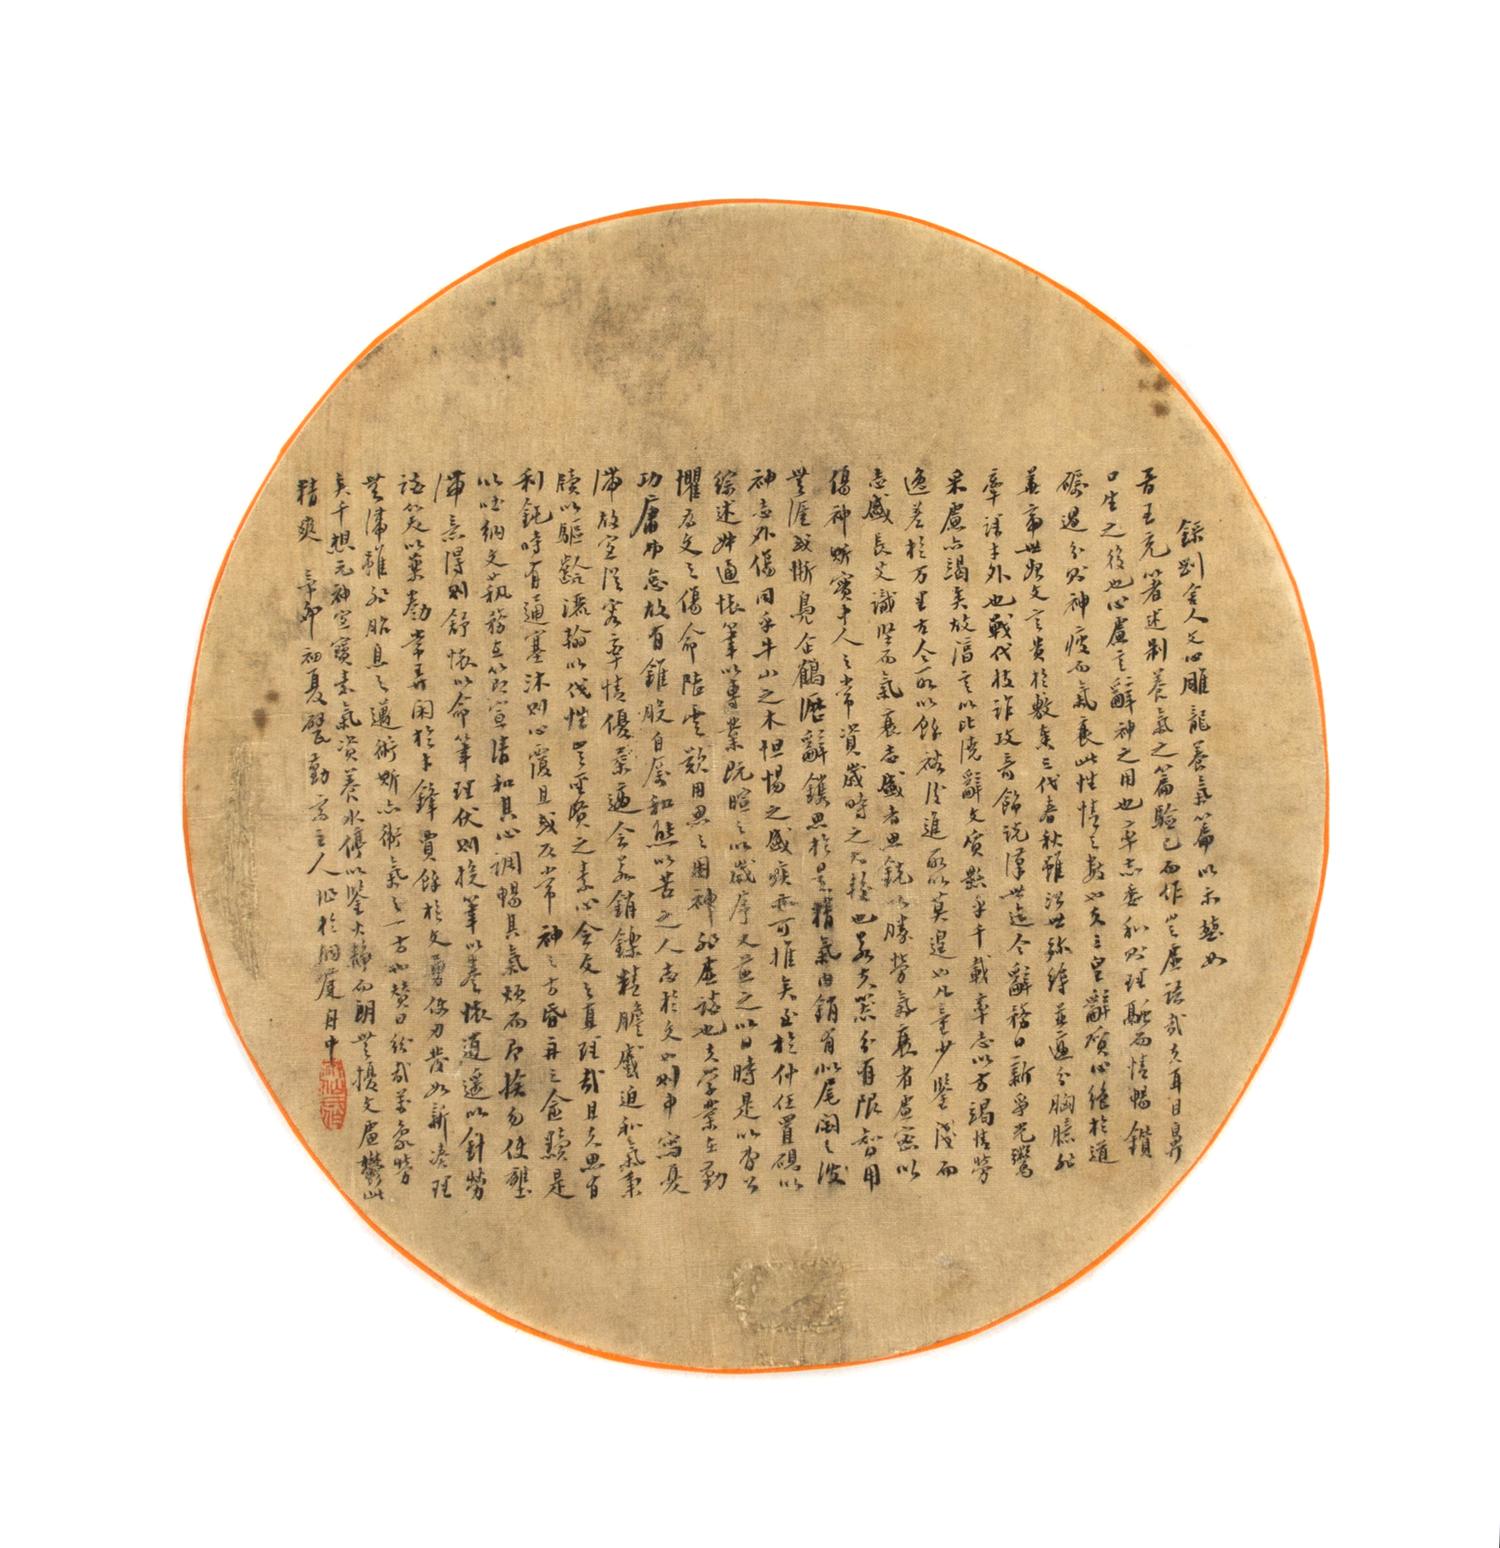 錄劉舍人文心雕龍養氣篇以示慧如
昔王充著述制養氣之篇驗己而作豈虛造哉夫耳目鼻
口生之役也心慮言辭神之用也率志委和則理融而情暢鑽
礪過分則神疲而氣衰此性情之數也夫三皇辭質心絕於道
華帝世始文言貴於敷奏三代春秋雖沿世彌縟並適分胸臆非
牽課才外也戰代技詐攻奇飾說漢世迄今辭務日新爭光鬻
采慮亦竭矣故淳言以比澆辭文質懸乎千載率志以方竭情勞
逸差於万里古人所以餘裕後進所以莫遑也凡童少鑒淺而
志盛長艾識堅而氣衰志盛者思銳以勝勞氣衰者慮密以
傷神斯實中人之常資歲時之大較也若夫器分有限智用
無涯或慚鳧企鶴瀝辭鐫思於是精氣內銷有似尾閭之波
神志外傷同乎牛山之木怛惕之盛疾亦可推矣至於仲任置硯以
綜述叔通懷筆以專業既暄之以歲序又煎之以日時是以曹公
懼為文之傷命陸雲歎用思之困神非虛談也夫學業在勤
功庸弗怠故有錐股自厲和熊以苦之人志於文也則申寫
滯故宜從容率情優柔適會若銷鑠精膽蹙迫和氣秉
牘以驅齡灑翰以伐性豈聖賢之素心會文之直理哉且夫思有
利鈍時有通塞沐則心覆且或反常神之方昏再三愈黷是
以吐納文藝務在節宣清和其心調暢其氣煩而即捨勿使壅
滯意得則舒懷以命筆理伏則投筆以卷懷逍遙以針勞
談笑以藥勌常弄閑於才鋒賈餘於文勇使刃發如新湊理
無滯雖非胎息之邁術斯亦衛氣之一方也贊曰紛哉萬象勞
矣千想元神宜寶素氣資養水停以鑒火靜而朗無擾文慮鬱此
精爽 辛卯初夏 勤 主人 於 舟中